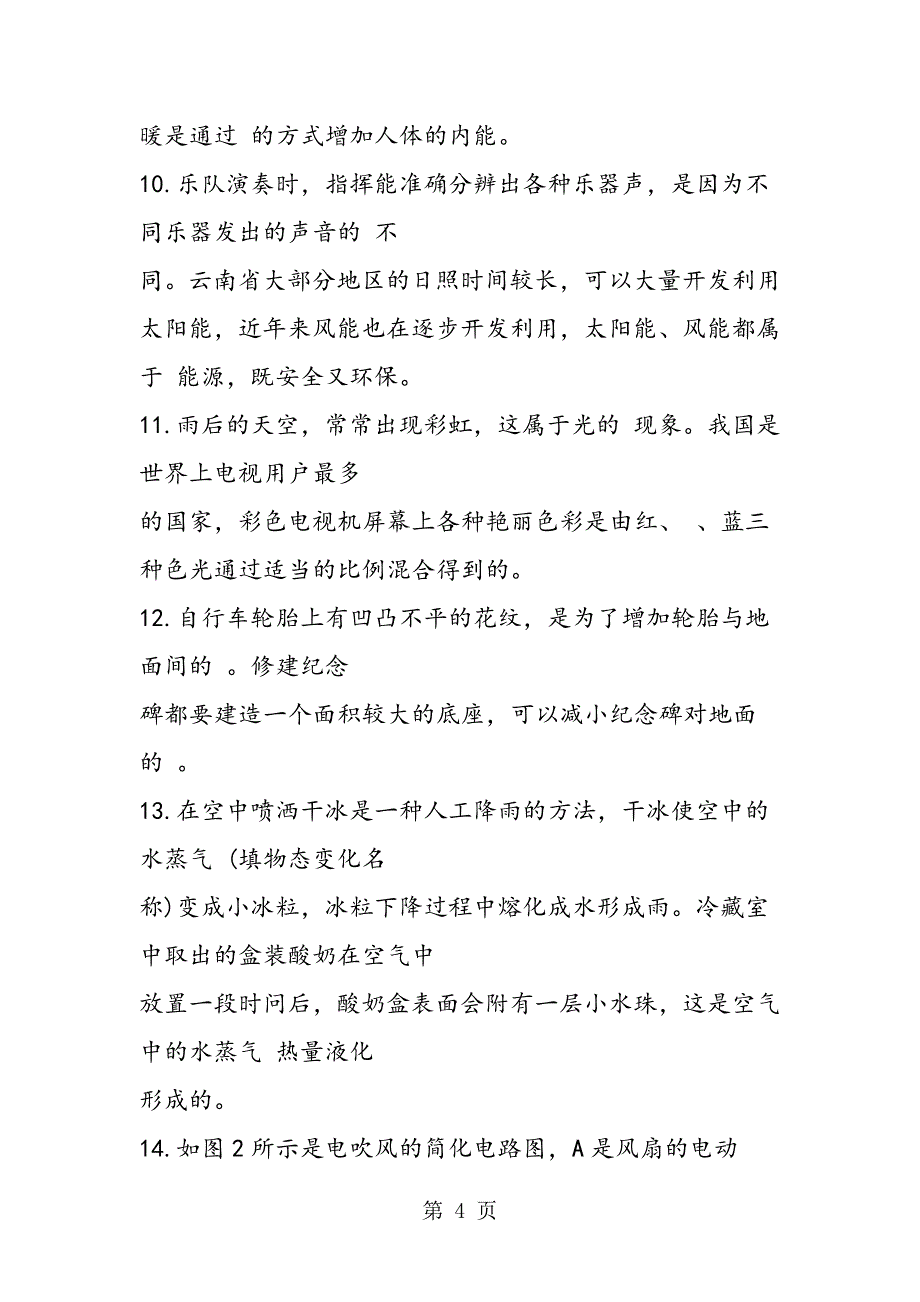 暖是通过 的方式增加人体的内能。
10.乐队演奏时，指挥能准确分辨出各种乐器声，是因为不
同乐器发出的声音的 不
同。云南省大部分地区的日照时间较长，可以大量开发利用
太阳能，近年来风能也在逐步开发利用，太阳能、风能都属
于 能源，既安全又环保。
11.雨后的天空，常常出现彩虹，这属于光的 现象。我国是
世界上电视用户最多
的国家，彩色电视机屏幕上各种艳丽色彩是由红、 、蓝三
种色光通过适当的比例混合得到的。
12.自行车轮胎上有凹凸不平的花纹，是为了增加轮胎与地
面间的 。修建纪念
碑都要建造一个面积较大的底座，可以减小纪念碑对地面
的 。
13.在空中喷洒干冰是一种人工降雨的方法，干冰使空中的
水蒸气 (填物态变化名
称)变成小冰粒，冰粒下降过程中熔化成水形成雨。冷藏室
中取出的盒装酸奶在空气中
放置一段时问后，酸奶盒表面会附有一层小水珠，这是空气
中的水蒸气 热量液化
形成的。
14.如图2所示是电吹风的简化电路图，A是风扇的电动
第 4 页